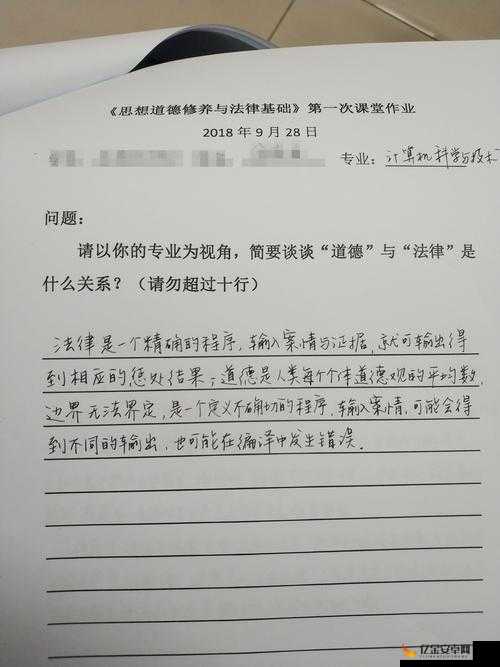 《思想道德修养与法律基础》第一次课堂作业
2018 年 9 月 28 日
专业：计算机科学与技术
问题：
请以你的专业为视角，简要谈谈“道德”与“法律”是
什么关系？（请勿超过十行）
法律是一个精确的程序，输入案情与证据，就可输出得
到相应的惩处结果；道德是人类每个个体道德观的平均数，
边界无法界定，是一个定义不确切的程序，输入案情，可能会得
到不同的输出，也可能在编译中发生错误。
亿金安卓网